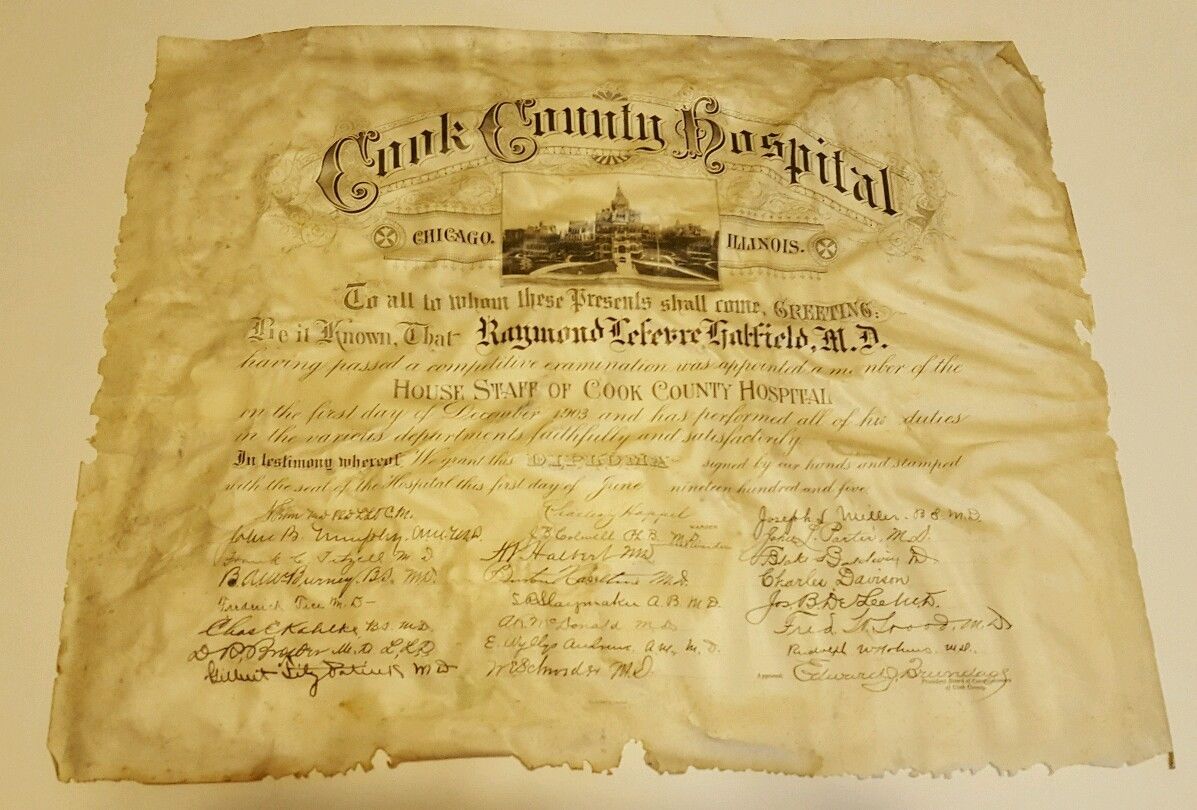 Cook County Hospital
CHICAGO. ILLINOIS.
To all to whom these Presents shall come, GREETING:
Be it Known, That Raymond Lefevre Hatfield, M.D.
having passed a competitive examination was appointed a member of the
HOUSE STAFF OF COOK COUNTY HOSPITAL
on the first day of December 1903 and has performed all of his duties
in the various departments faithfully and satisfactorily.
In testimony whereof, We grant this DIPLOMA signed by our hands and stamped
with the seal of the Hospital this first day of June nineteen hundred and five
Joseph L. Miller B.S. M.D.
WARDEN
John B. Murphy, M.D. J.B. Colwell Ph.B. M.D. John L. Porter, M.D.
Frank C. M.D. W. Halbert MD Blake Baldwin
B.A. McBurney, B.S. M.D. M.D. Charles Davison
Frederick Tice M.D. Slaymaker A.B. M.D. Jos B De Lee M.D.
Chas E Kahlke, B.S. M.D. McDonald M.D. Fred W. Wood, M.D.
M.D. L.L.B. E. Wyllys Andrews, A.M. M.D. Rudolph M.D.
Gilbert FitzPatrick M.D. W E Schroeder M.D. Approved, Edward J. Brundage
President Board of Commissioners
of Cook County